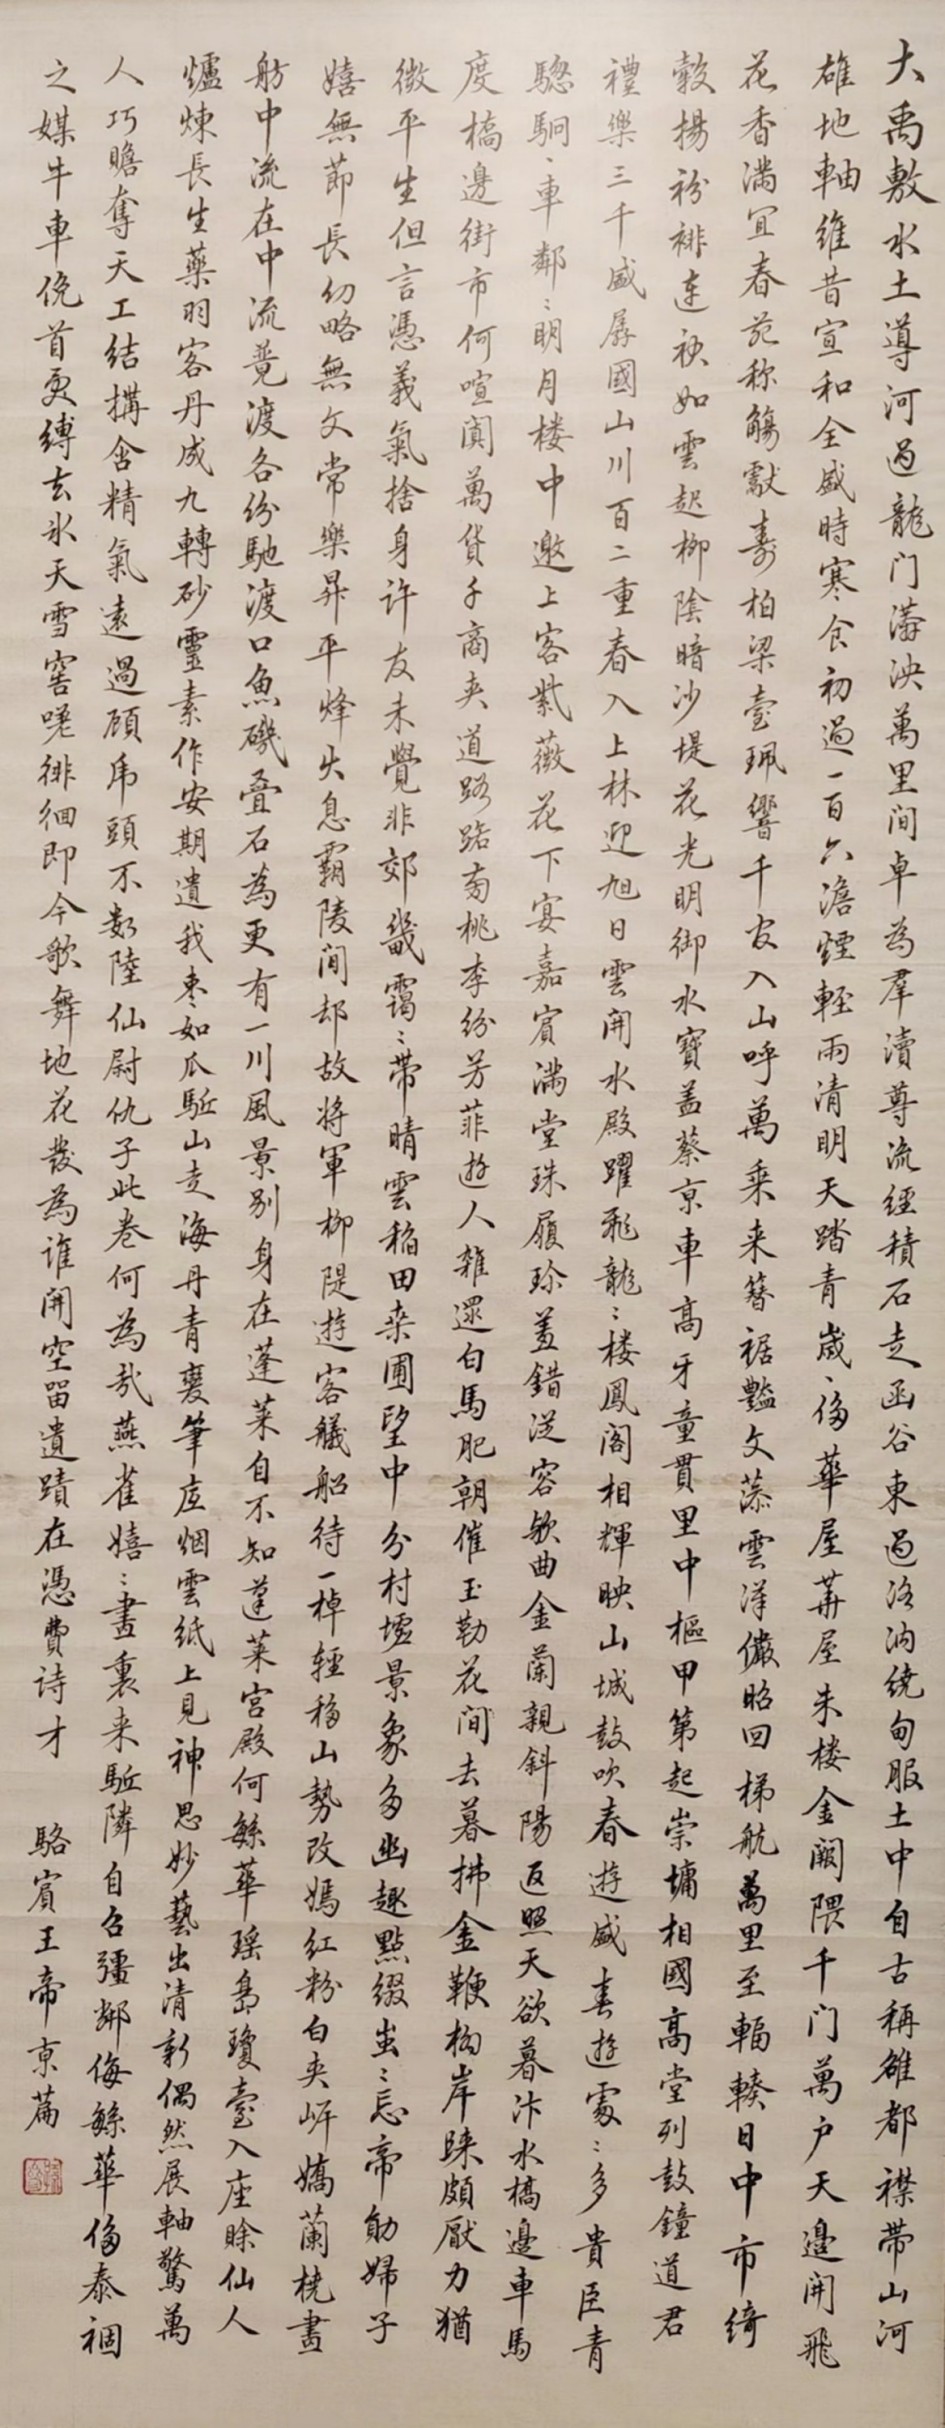 大禹敷水土導河過龍门滿泱萬里间卓為羣瀆尊流經積石走函谷東過洛汭繞甸服土中自古稱雒都襟带山河
雄地軸維昔宣和全盛時寒食初過一百六澹煙輕雨清明天踏青歲、侈華屋華屋朱楼金闕隈千门萬户天邉開飛
花香滿宜春苑称觴獻壽柏梁臺珮響千官入山呼萬乗来簪裾豔文藻雲漢儼昭回梯航萬里至輻輳日中市綺
縠揚衯裶連袂如雲起柳陰暗沙堤花光明御水寶盖蔡京車高牙童貫里中樞甲第起崇墉相國高堂列鼓鐘道君
禮樂三千盛孱國山川百二重春入上林迎旭日雲開水殿躍飛龍〻楼鳳阁相輝映山城鼓吹春遊盛春遊處〻多貴臣青
驄駉、車鄰〻明月楼中邀上客紫薇花下宴嘉賓满堂珠履珍盖錯從容欵曲金蘭親斜陽返照天欲暮汴水橋邉車馬
度橋邊街市何喧闐萬貨千商夹道路路旁桃李纷芳菲遊人雜還白馬肥朝催玉勒花间去暮拂金鞭柳岸䟆頗厭力猶
微平生但言憑義氣捨身许友未覺非郊畿靄〻带晴雲稲田桑圃望中分村墟景象多幽趣點缀蚩〻忘帝勛婦子
嬉無節長幼略無文常樂昇平烽火息霸陵间却故将軍柳隄遊客艤船待一棹轻移山勢改嫣红粉白夹岸嬌蘭桡畫
舫中流在中流競渡各纷馳渡口魚磯叠石為更有一川風景别身在蓬莱自不知蓬莱宫殿何繇華瑶島瓊臺入座賒仙人
爐煉長生藥羽客丹成九轉砂靈素作安期遺我枣如瓜駈山走海丹青裏筆底烟雲紙上見神思妙藝出清新偶然展軸驚萬
人巧瞻奪天工结搆含精氣遠過顾虎頭不数陸仙尉仇子此卷何為哉燕雀嬉〻畫裏来駈隣自召彊鄰侮繇華侈泰祸
之媒牛車俛首更縛去氷天雪窖嗟徘徊即今歌舞地花發為谁開空留遺蹟在憑費诗才 駱賓王帝京篇